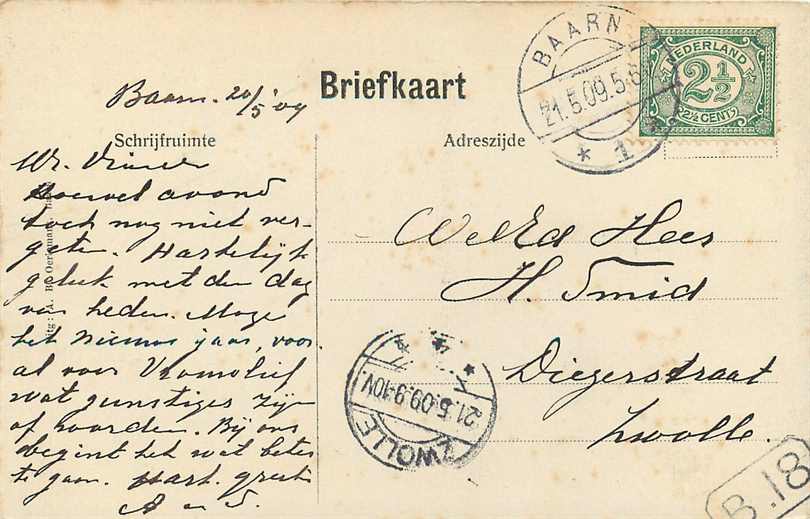 BAARN
21.5.09.5-6
* 1 *
NEDERLAND
2½
2½ CENT
Briefkaart
Baarn. 20/5 '09
Schrijfruimte
Adreszijde
Wr. Vriend
Hoewel avond
toch nog niet ver-
geten. Hartelijk
geluk met den dag
van heden. Moge
het nieuwe jaar, voor-
al voor
wat gunstiger zijn
of worden. Bij ons
begint het wat beter
te gaan. Hart. groet
A en S.
WelEd Heer
H. Smid
Diezerstraat
Zwolle.
ZWOLLE
21.5.09.9-10V.
B.18